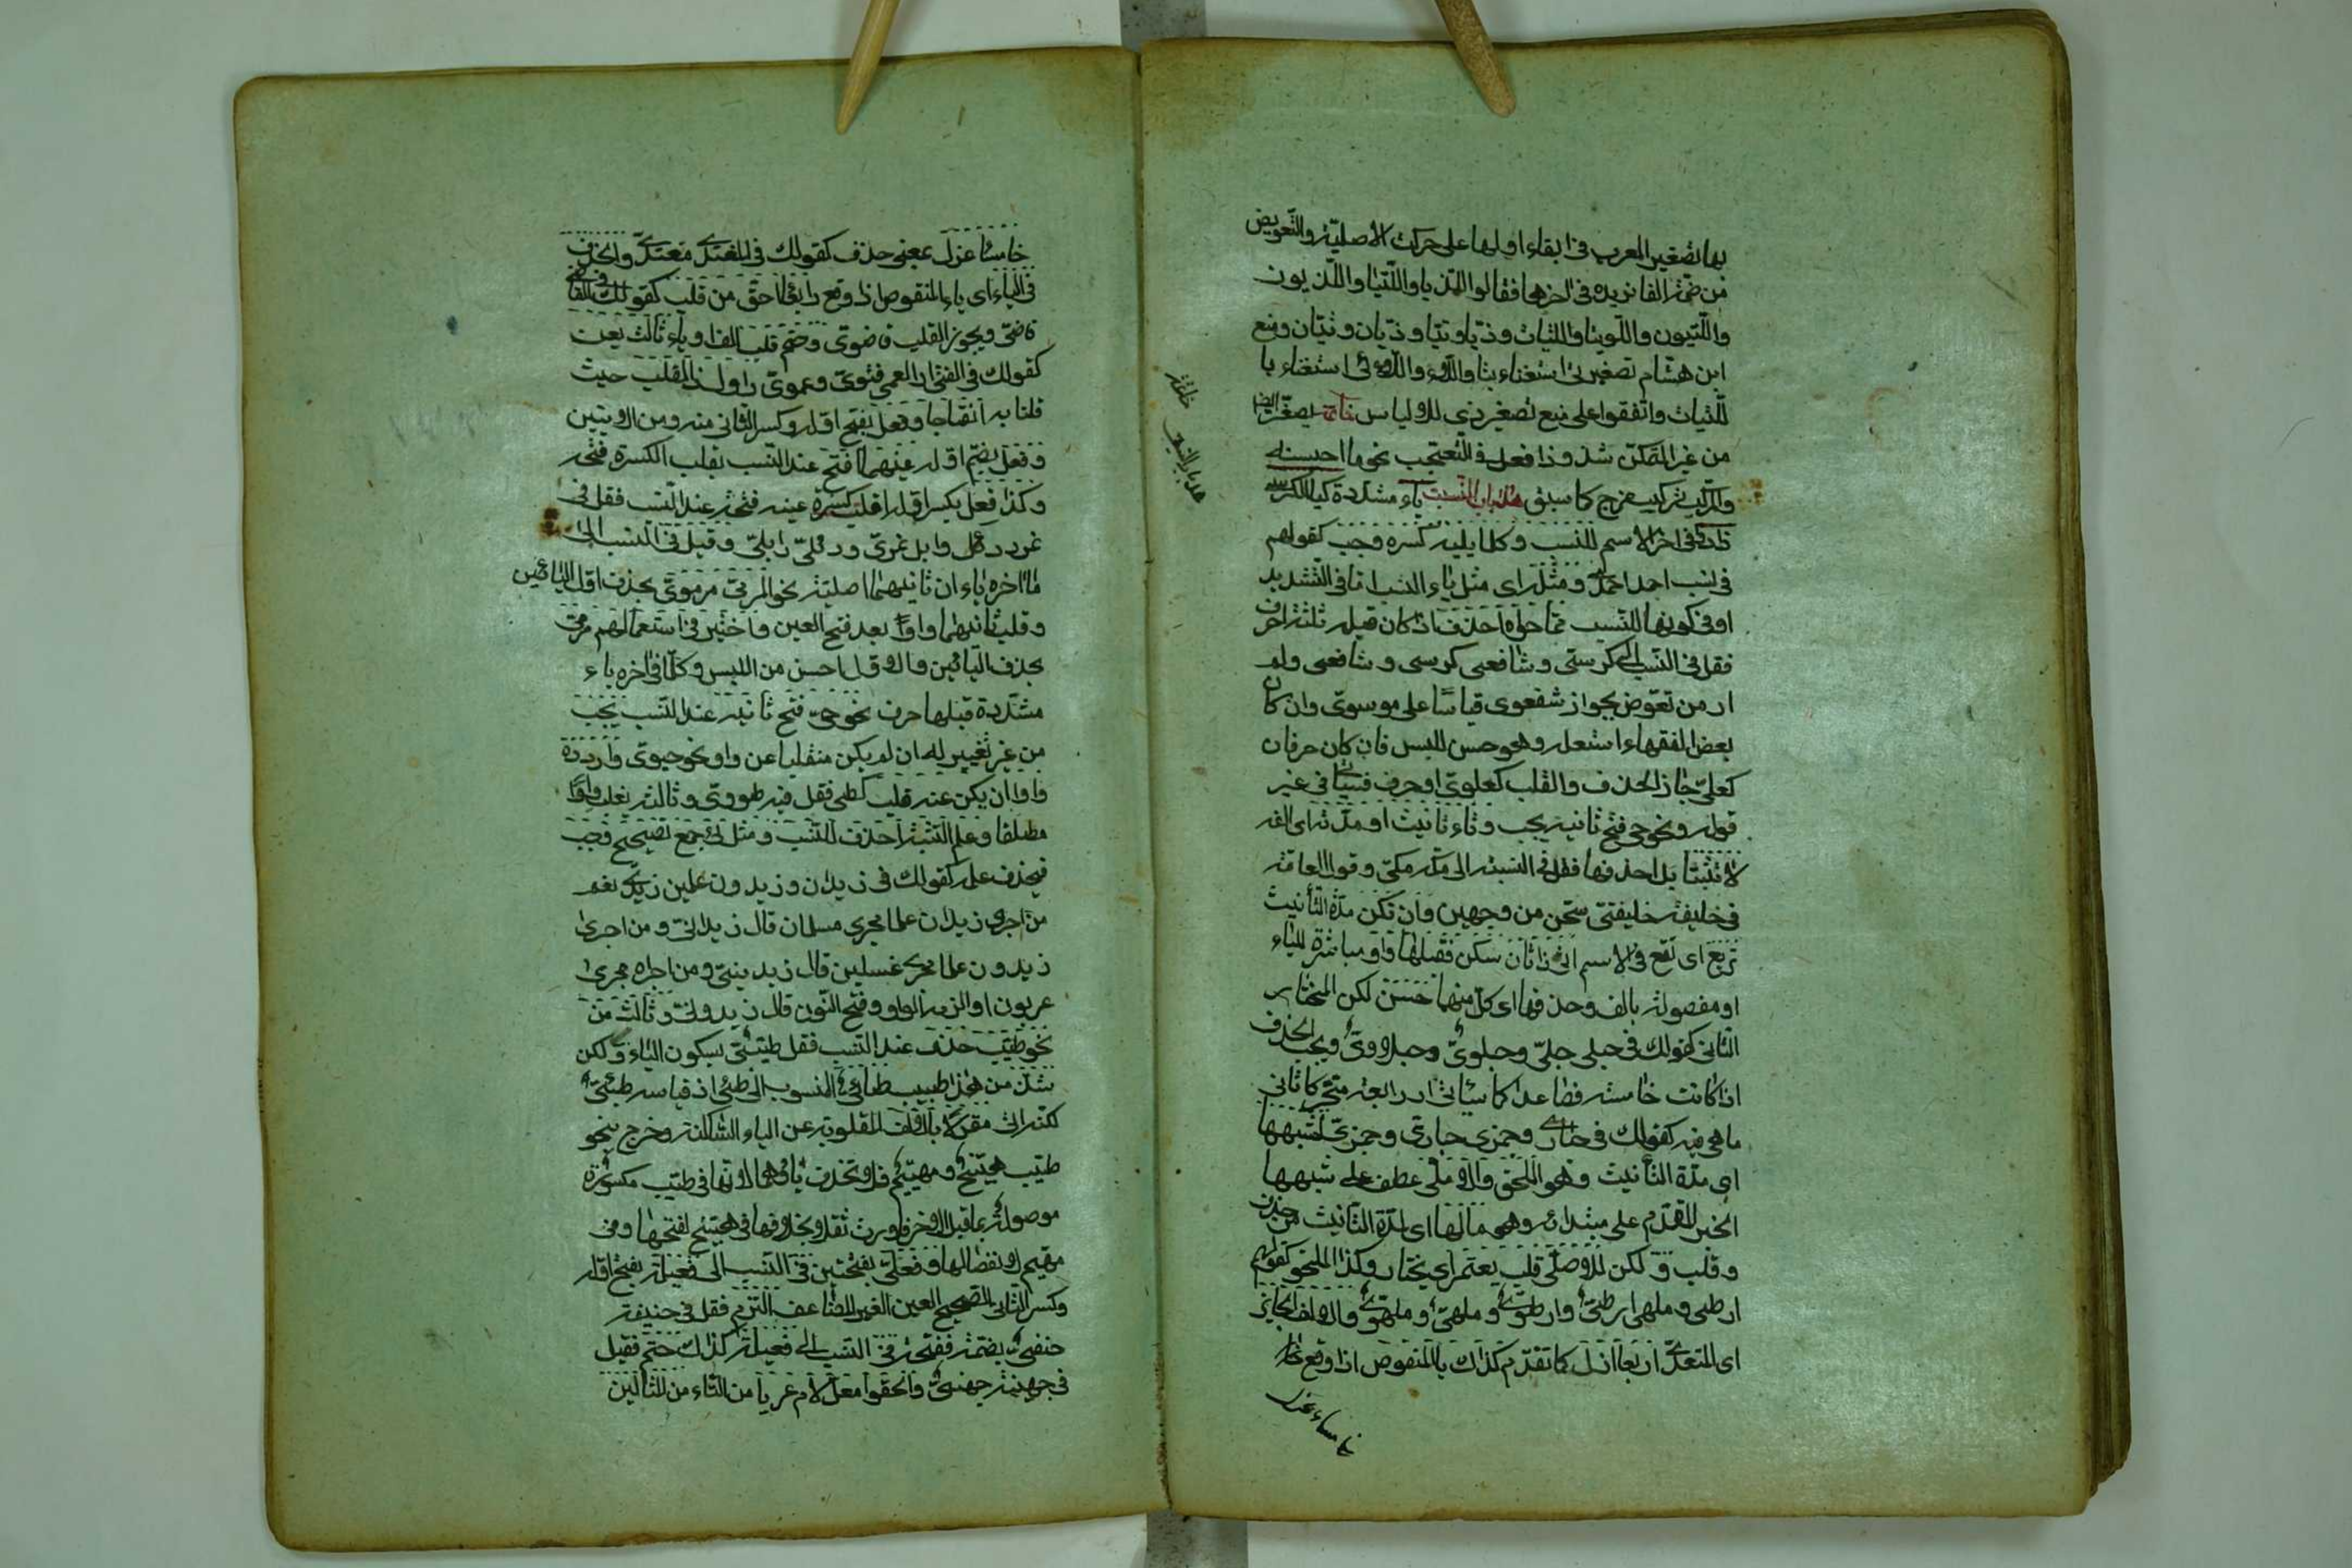 بها تصغير المعرب في ابقاء اولها على حركته الاصلية والتعويض
من ضمته الفا مزيدة في اخرها فقالوا اللذيا واللتيا واللذيون
واللتيون واللويتا واللتيات وذيا وتيا وذيان وتيان ومنع
ابن هشام تصغير تي استغناء بتا واللاء واللائي استغناء با
للتيات واتفقوا على منع تصغير ذي للالباس خاتمة يصغر ايضا
من غير المتمكن شذوذا فعل في التعجب نحو ما احيسنه
والمركب تركيب مزج كما سبق هذا باب النسب ياء مشددة كيا الكرسي
زادوا في اخر الاسم للنسب وكلما يليه كسره وجب كقولهم
في نسب احمد احمدي ومثله اي مثل ياء النسب اما في التشديد
او في كونها للنسب مما حواه احذف اذا كان قبله ثلثة احرف
فقل في النسب الى كرسي وشافعي كرسي وشافعي ولم
ار من تعرض لجواز شفعوي قياسا على موسوي وان كان
بعض الفقهاء استعمله وهو حسن للبس فان كان حرفان
كعلي جاز الحذف والقلب كعلوي او حرف فسياتي في غير
قوله ونحو حي فتح ثانيه يجب وتاء تانيث او مدته اي الفه
لا تثبتا بل احذفها فقل في النسبة الى مكة مكي وقول العامة
في خليفة خليفتي لحن من وجهين وان تكن مدة التأنيث
تربع اي تقع في الاسم ذا ثان سكن فقلبها واوا مباشرة للياء
او مفصولة بالف وحذفها اي كل منهما حسن لكن المختار
الثاني كقولك في حبلى حبلي وحبلوي وحبلاوي ويجب الحذف
اذا كانت خامسة فصاعدا كما سيأتي او رابعة متحركا ثاني
ما هي فيه كقولك في حبارى وجمزى حباري وجمزي لشبهها
اي مدة التأنيث وهو الملحق والاصلي عطف على شبهها
الخبر المقدم على مبتدائه وهو ما لها اي لمدة التأنيث من حذف
وقلب ولكن للاصلي قلب يعتمى اي يختار وكذا الملحق كقولهم
ارطى وملهى ارطي وارطوي وملهي وملهوي والالف الجائز
اي المتعدي اربعا ازل كما تقدم كذاك يا المنقوص اذا وقع خامسا
خامسا عزل
هذا باب النسب
خامسا عزل بمعنى حذف كقولك في المعتدي معتدي والحذف
في الياء اي ياء المنقوص اذا وقع رابعا احق من قلب كقولك في القاضي
قاضي ويجوز القلب قاضوي وحتم قلب الفا وياء ثالث يعن
كقولك في الفتى والعمي فتوي وعموي واول ذا القلب حيث
قلنا به انفتاحا وفعل بفتح اوله وكسر الثاني منه ومن الاتيين
وفعل بضم اوله عينهما افتح عند النسب بقلب الكسرة فتحة
وكذا فعل بكسر اوله اقلب كسرة عينه فتحة عند النسب فقل في
نمر ودئل وابل نمري ودؤلي وابلي وقيل في النسب الى
ما اخره ياءان ثانيهما اصلية نحو المرمي مرموي بحذف اول اليائين
وقلب ثانيهما واوا بعد فتح العين واختير في استعمالهم مرمي
بحذف اليائين والاول احسن من اللبس وكلما في اخره ياء
مشددة قبلها حرف نحو حي فتح ثانيه عند النسب يجب
من غير تغيير له ان لم يكن منقلبا عن واو نحو حيوي واردده
واوا ان يكن عنه قلب كطي فقل فيه طووي وثالثه يقلب واوا
مطلقا وعلم التثنية احذف للنسب ومثل ذا في جمع تصحيح وجب
فيحذف علمه كقولك في زيدان وزيدون علمين زيدي نعم
من اجرى زيدان علما مجرى سلمان قال زيداني ومن اجرى
زيدون علما مجرى غسلين قال زيديني ومن اجراه مجرى
عربون او الزمه الواو وفتح النون قال زيدوني وثالث من
نحو طيب حذف عند النسب فقل طيبي بسكون الياء ولكن
شذ من نحو طيب طائي المنسوب الى طيئ اذ قياسه طيئي
لكنه اتى مقولا بالالف المقلوبة عن الياء الساكنة وخرج بنحو
طيب هبيخ ومهيم فلا تحذف ياؤهما لانها في طيب مكسورة
موصولة بما قبل الاخر فاورث ثقلا بخلافها في هبيخ لفتحها وفي
مهيم لانفصالها وفعلي بفتحتين في النسب الى فعيلة بفتح اوله
وكسر الثاني الصحيح العين الغير المضاعف التزم فقل في حنيفة
حنفي وفعلي بضمة ففتحة في النسب الى فعيلة كذاك حتم فقيل
في جهينة جهني والحقوا معل لام عريا من التاء من المثالين